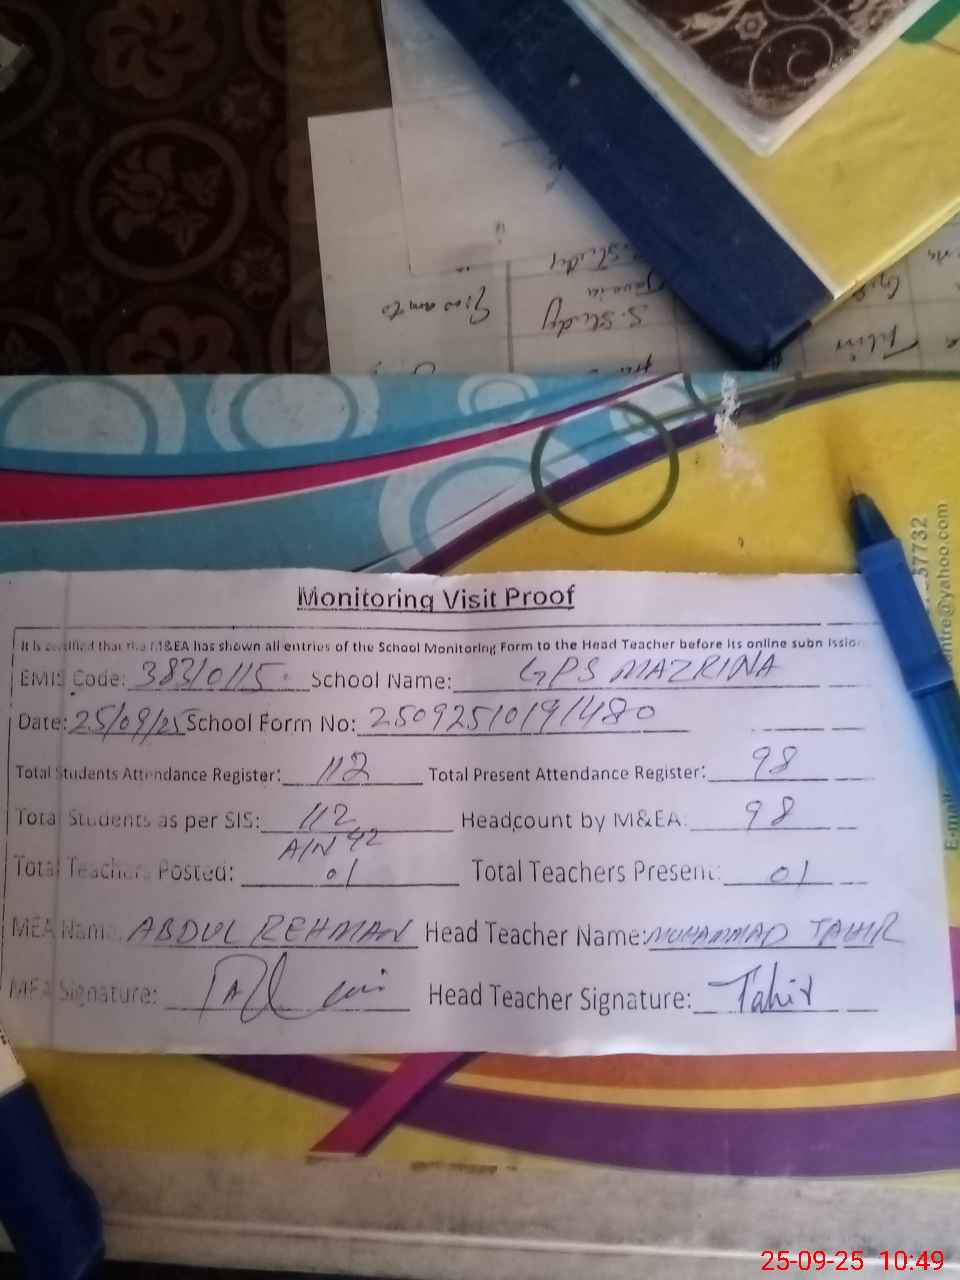 S.Study
S.Study
Javaria
37732
ntre@yahoo.com
E-m
Monitoring Visit Proof
It is certified that the M&EA has shown all entries of the School Monitoring Form to the Head Teacher before its online subn ission
EMIS Code: 38310115 School Name: GPS MAZRINA
Date: 25/09/25 School Form No: 25092510191480
Total Students Attendance Register: 112 Total Present Attendance Register: 98
Total Students as per SIS: 112 Headcount by M&EA: 98
A/N 42
Total Teachers Posted: 01 Total Teachers Present: 01
MEA Name: ABDUL REHMAN Head Teacher Name: MUHAMMAD TAHIR
MEA Signature: Head Teacher Signature: Tahir
25-09-25 10:49